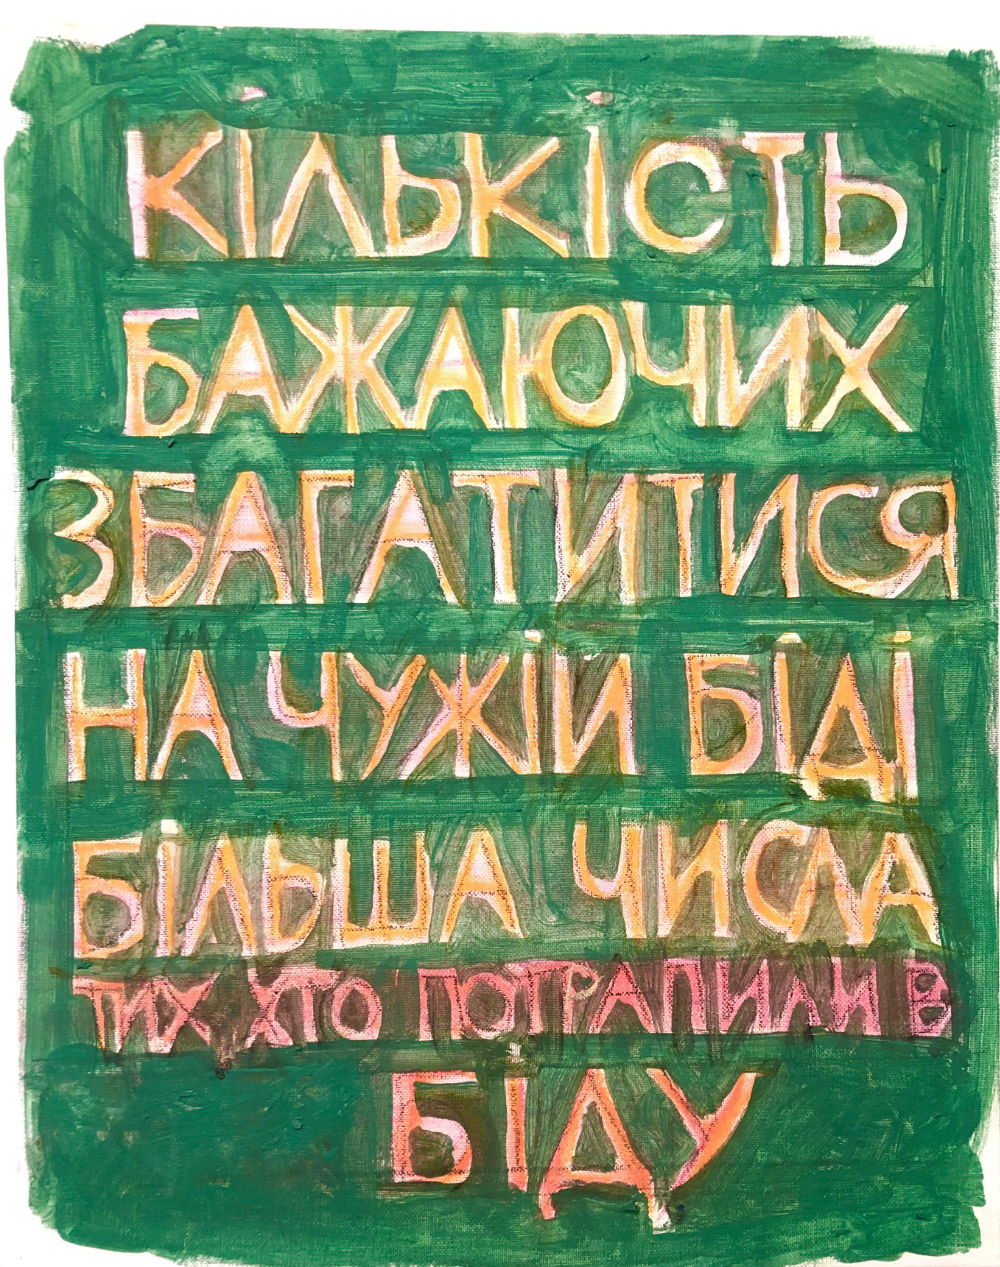 КІЛЬКІСТЬ
БАЖАЮЧИХ
ЗБАГАТИТИСЯ
НА ЧУЖІЙ БІДІ
БІЛЬША ЧИСЛА
ТИХ ХТО ПОТРАПИЛИ В
БІДУ